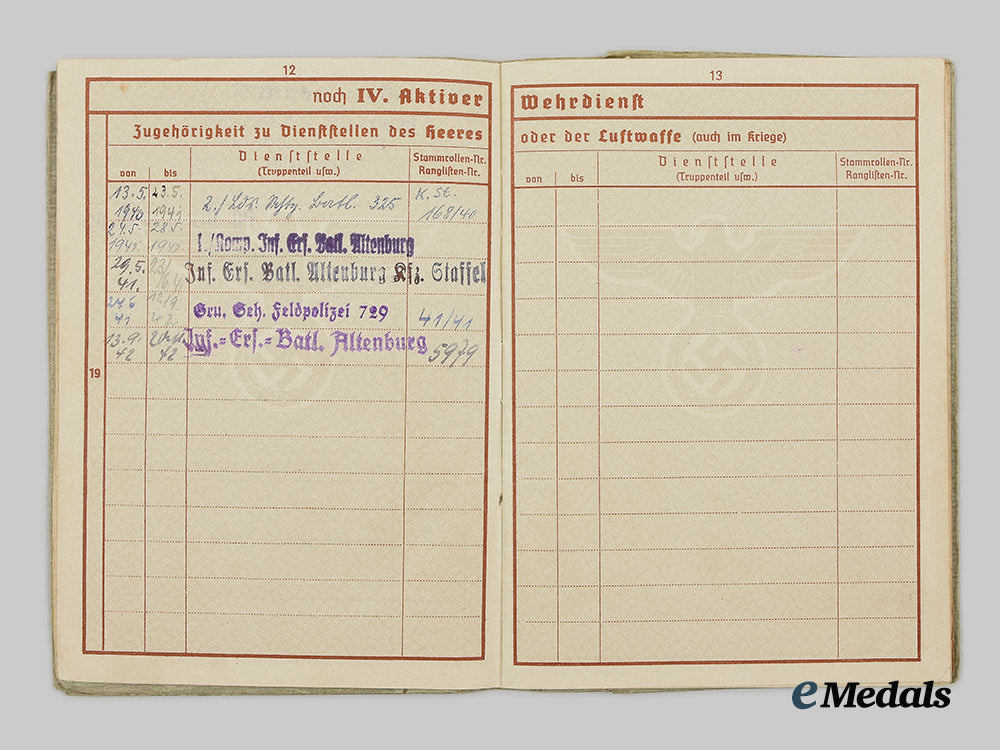 12
noch IV. Aktiver
Zugehörigkeit zu Dienststellen des Heeres
von bis
Dienststelle
(Truppenteil usw.)
Stammrollen-Nr.
Ranglisten-Nr.
13.5. 23.5.
1940 1941
2./ Lds. Schtz. Batl. 325
K. St.
168/40
24.5. 28.5.
1941 1941
1./Komp. Inf. Ers. Batl. Altenburg
29.5.
41.
Inf. Ers. Batl. Altenburg Kfz. Staffel
41 42
Gru. Geh. Feldpolizei 729
41/41
13.9.
42 42
Inf.-Ers.-Batl. Altenburg
5979
19
13
Wehrdienst
oder der Luftwaffe (auch im Kriege)
von bis
Dienststelle
(Truppenteil usw.)
Stammrollen-Nr.
Ranglisten-Nr.
eMedals